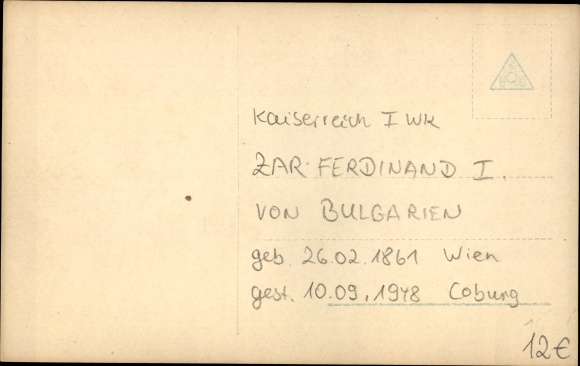 Kaiserreich I WK
ZAR FERDINAND I.
VON BULGARIEN
geb. 26.02.1861 Wien
gest. 10.09.1948 Coburg
12€